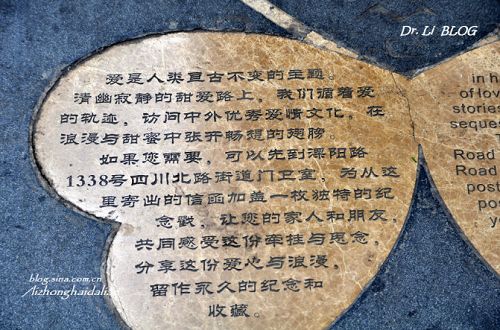 Dr. Li BLOG
爱是人类亘古不变的主题。
清幽寂静的甜爱路上，我们循着爱
的轨迹，访问中外优秀爱情文化，在
浪漫与甜蜜中张开畅想的翅膀。
如果您需要，可以先到溧阳路
1338号四川北路街道门卫室，为从这
里寄出的信函加盖一枚独特的纪
念戳，让您的家人和朋友，
共同感受这份牵挂与思念，
分享这份爱心与浪漫，
留作永久的纪念和
收藏。
in h
of lov
stories
seque
Road
Road
post
pos
y
blog.sina.com.cn
/lizhonghaidali